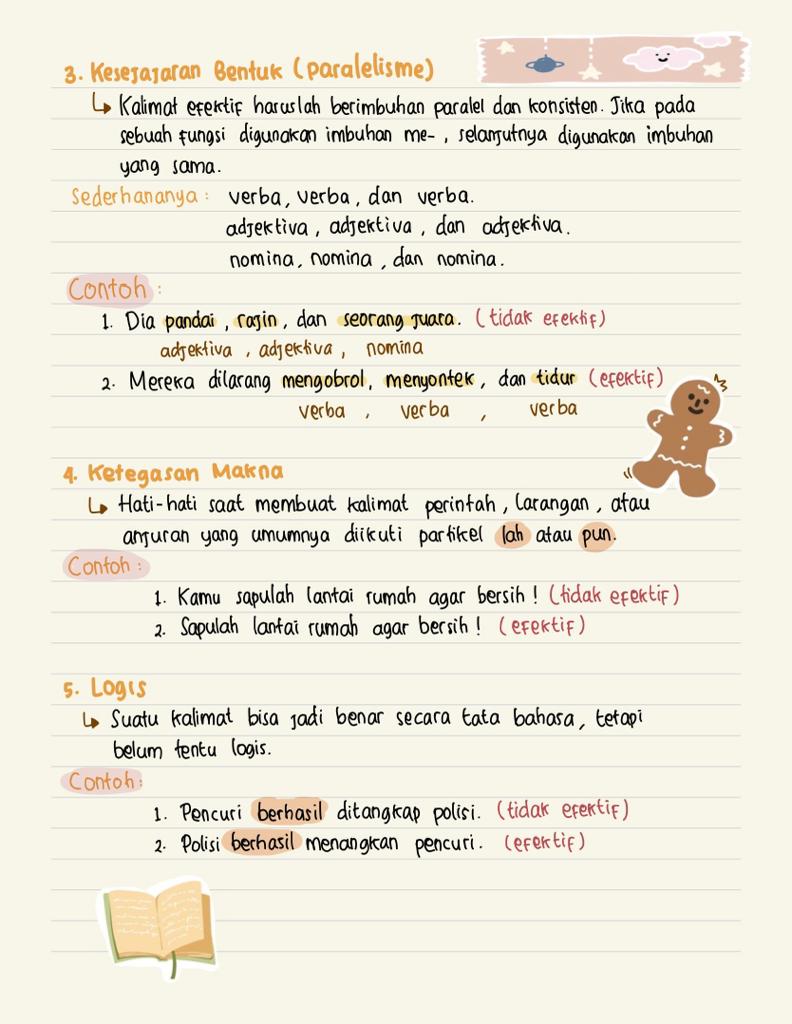 3. Kesejajaran Bentuk (Paralelisme)
↳ Kalimat efektif haruslah berimbuhan paralel dan konsisten. Jika pada
sebuah fungsi digunakan imbuhan me- , selanjutnya digunakan imbuhan
yang sama.
Sederhananya : verba, verba, dan verba.
adjektiva, adjektiva, dan adjektiva.
nomina, nomina, dan nomina.
Contoh :
1. Dia pandai, rajin, dan seorang juara. (tidak efektif)
adjektiva, adjektiva, nomina
2. Mereka dilarang mengobrol, menyontek, dan tidur (efektif)
verba , verba , verba
4. Ketegasan Makna
↳ Hati-hati saat membuat kalimat perintah, larangan, atau
anjuran yang umumnya diikuti partikel lah atau pun.
Contoh :
1. Kamu sapulah lantai rumah agar bersih! (tidak efektif)
2. Sapulah lantai rumah agar bersih! (efektif)
5. Logis
↳ Suatu kalimat bisa jadi benar secara tata bahasa, tetapi
belum tentu logis.
Contoh :
1. Pencuri berhasil ditangkap polisi. (tidak efektif)
2. Polisi berhasil menangkan pencuri. (efektif)